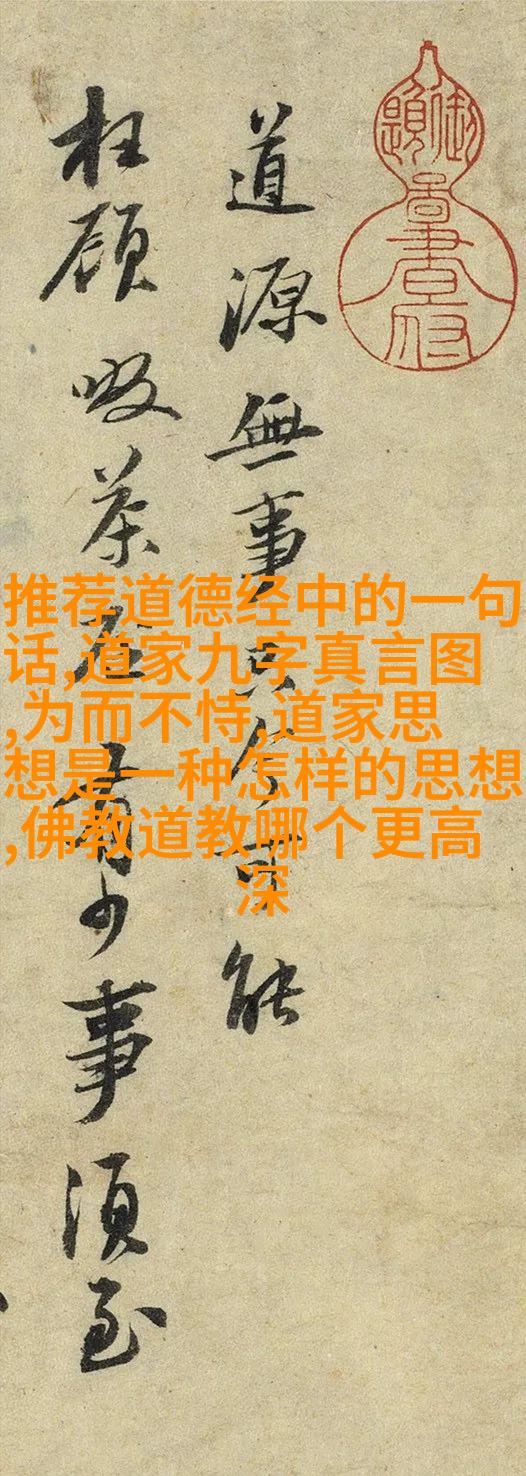 道源無事只今可能
枉顧啜茶否有少事須至
推荐道德经中的一句
话,道家九字真言图
,为而不恃,道家思
想是一种怎样的思想
,佛教道教哪个更高
深